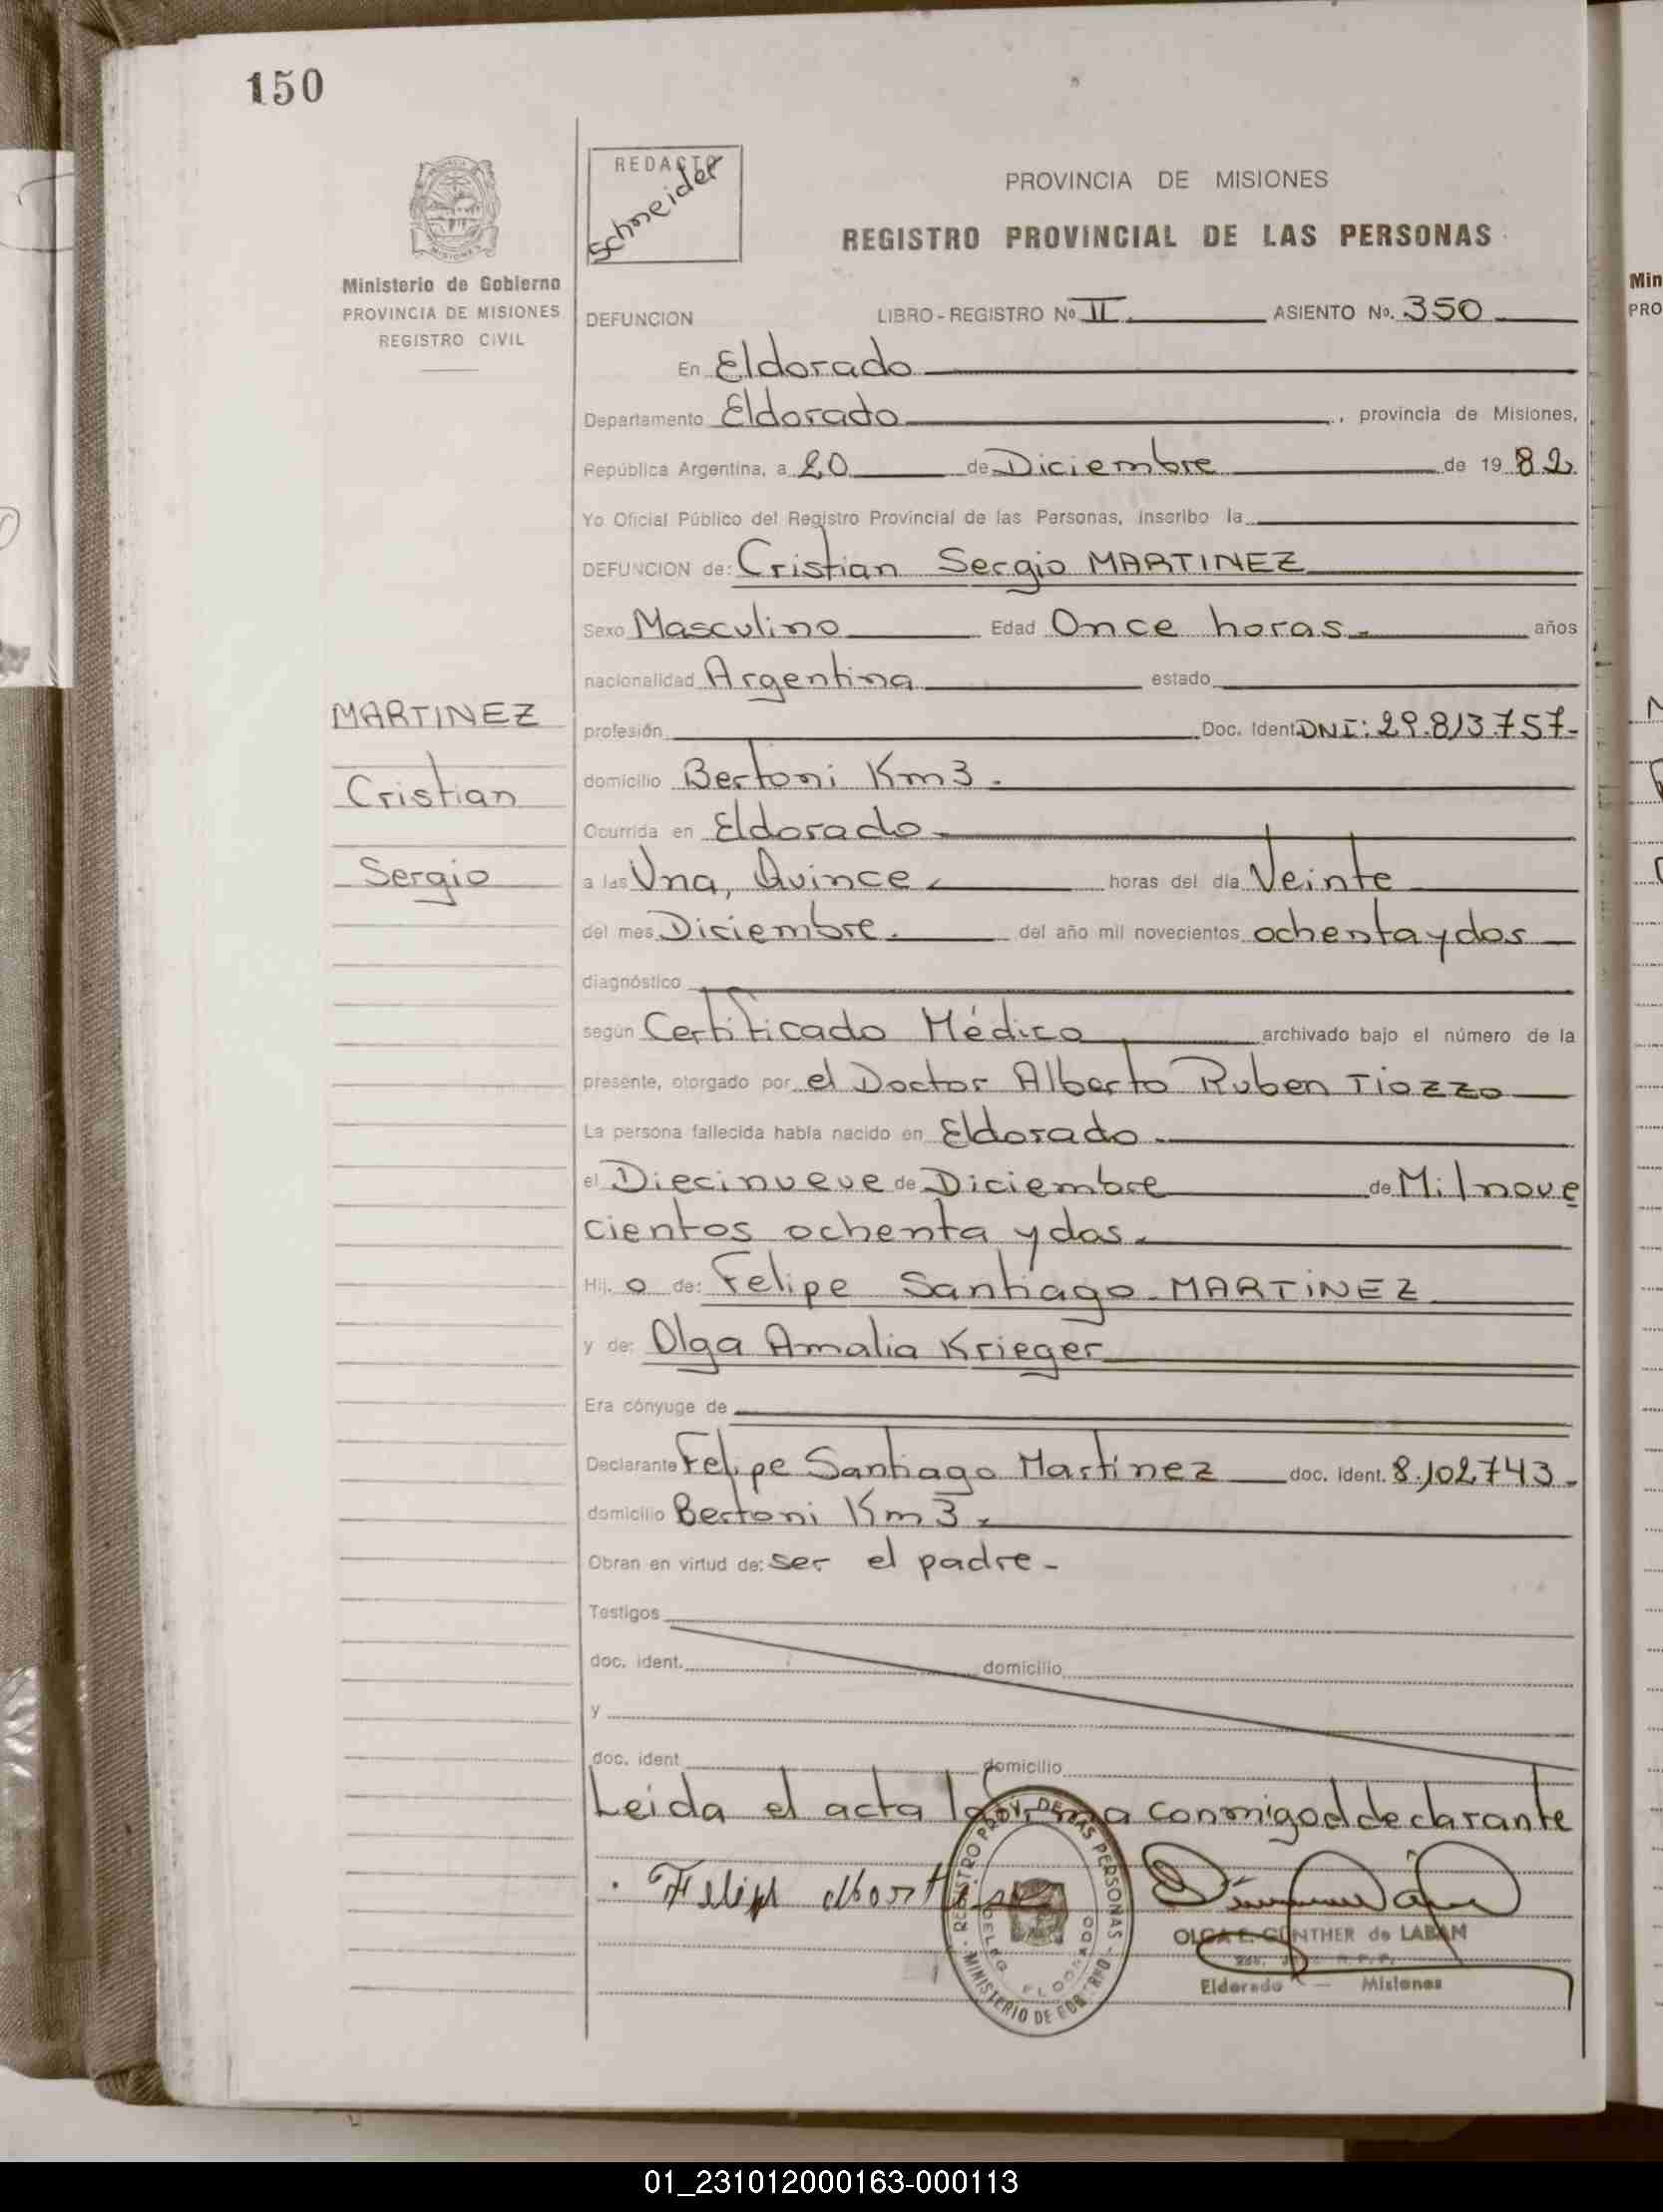 150
REDACTO
Schneider
PROVINCIA DE MISIONES
REGISTRO PROVINCIAL DE LAS PERSONAS
Ministerio de Gobierno
PROVINCIA DE MISIONES
REGISTRO CIVIL
DEFUNCION LIBRO-REGISTRO No II. ASIENTO No. 350
En Eldorado
Departamento Eldorado, provincia de Misiones,
República Argentina, a 20 de Diciembre de 1982
Yo Oficial Público del Registro Provincial de las Personas, inscribo la
DEFUNCION de: Cristian Sergio MARTINEZ
Sexo Masculino Edad Once horas.- años
nacionalidad Argentina estado
MARTINEZ
Cristian
Sergio
profesión Doc. Ident. DNI: 29.813.757-
domicilio Bertoni Km3.
Ocurrida en Eldorado.
a las Una, Quince. horas del día Veinte
del mes Diciembre. del año mil novecientos ochenta y dos
diagnóstico
según Certificado Médico archivado bajo el número de la
presente, otorgado por el Doctor Alberto Ruben Tiozzo
La persona fallecida había nacido en Eldorado.
el Diecinueve de Diciembre de Mil nove
cientos ochenta y dos.
Hij. o de: Felipe Santiago MARTINEZ
y de: Olga Amalia Krieger
Era cónyuge de
Declarante Felipe Santiago Martínez doc. ident. 8.102.743.
domicilio Bertoni Km3.
Obran en virtud de: ser el padre-
Testigos
doc. ident. domicilio
y
doc. ident. domicilio
Leida el acta la firma conmigo el declarante
Felipe Martinez
REGISTRO PROV. DE LAS PERSONAS
MINISTERIO DE GOBIERNO
OLGA E. GÜNTHER de LABAM
Eldorado — Misiones
Min
PRO
01_231012000163-000113